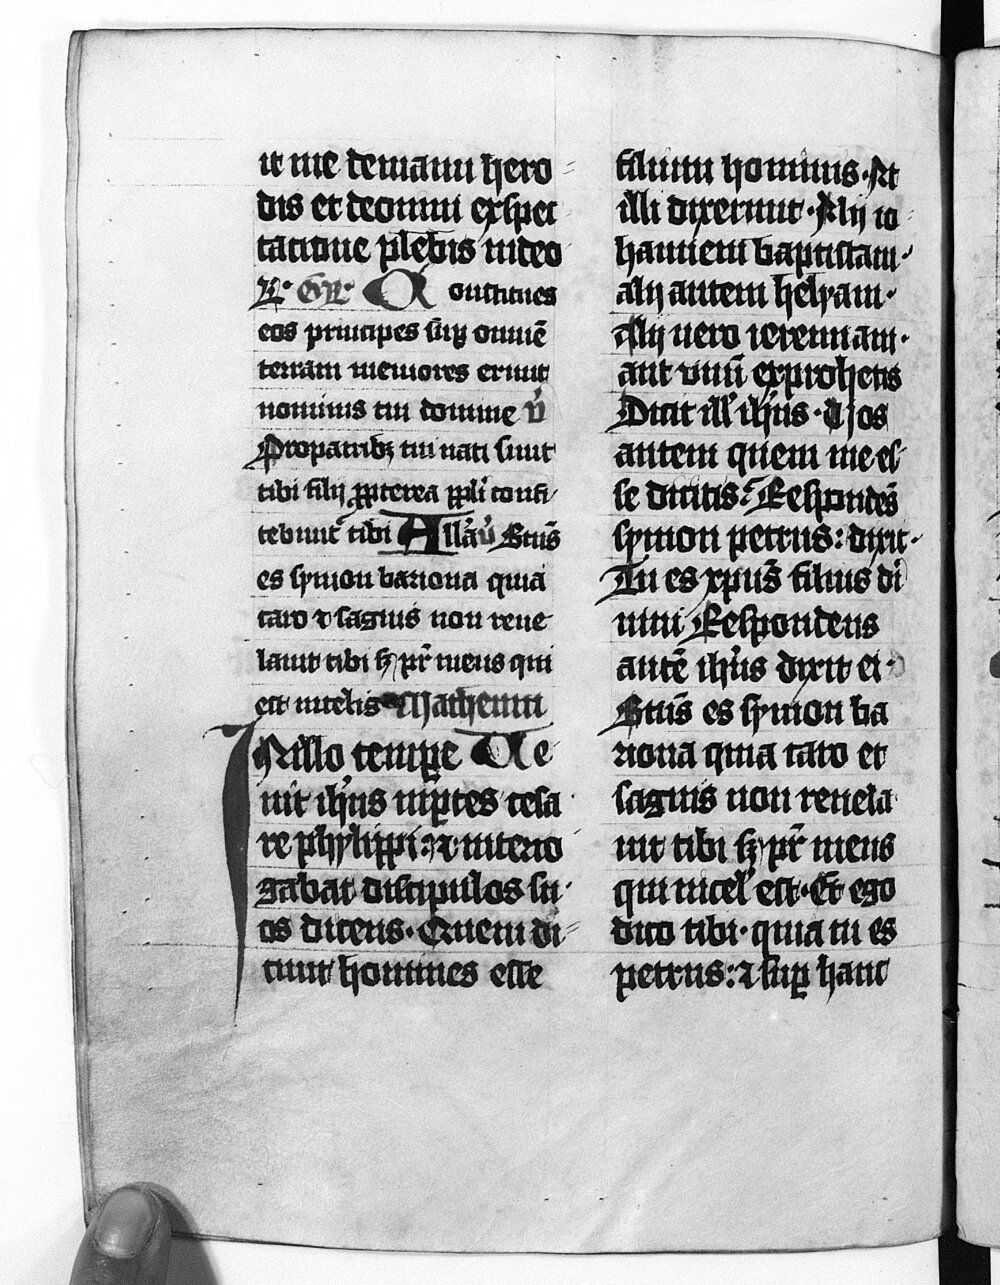 it me demanu hero
dis et deomni exspec
tatione plebis iudeo
R. Gr. Constitues
eos principes sup omnē
terram memores erunt
nominis tui domine v̄
Propatribꝫ tui nati sunt
tibi filij ꝓpterea ppli confi
tebunt᷑ tibi Alla v̄ Btūs
es symon bariona quia
caro ⁊ sagius non reue
lauit tibi sꝫ pr̄ meus qui
est in celis Matheum
In illo tempe Ve
nit ih̄us in ꝑtes cesa
re phylippi: ⁊ interro
gabat discipulos su
os dicens. Quem di
cunt homines esse
filium hominis. At
illi dixerunt. Alij io
hannem baptistam.
alij autem helyam.
Alij uero ieremiam.
aut vnū ex prophetis
Dicit ill' ih̄us. Uos
autem quem me es
se dicitis? Respondēs
symon petrus: dixit.
Tu es xpūs filius di
uini Respondens
autē ih̄us dixit ei.
Btūs es symon ba
riona quia caro et
saguis non reuela
uit tibi sꝫ pr̄ meus
qui in cel' est. Et ego
dico tibi. quia tu es
petrus: ⁊ sup hanc